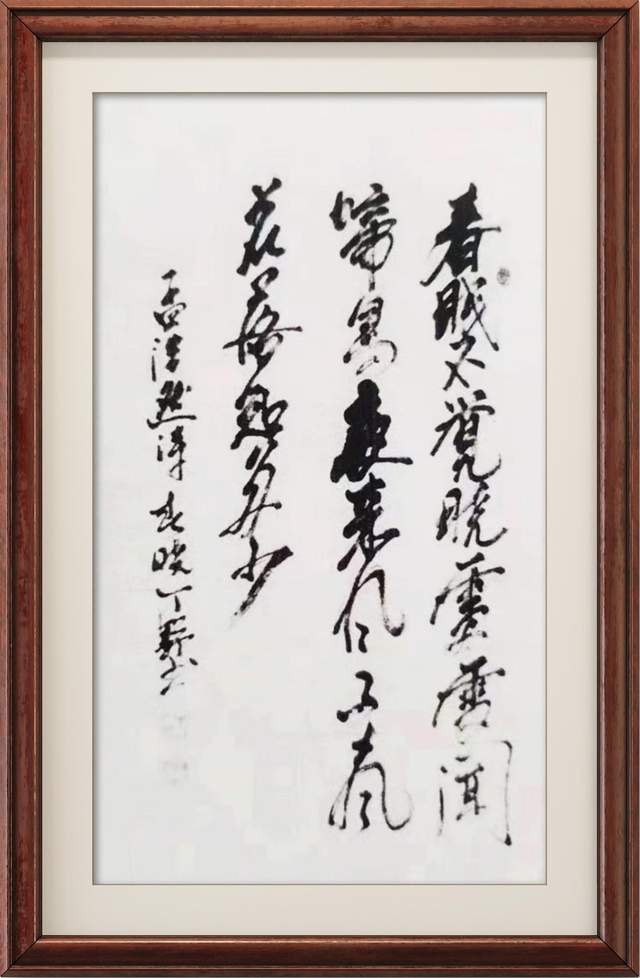 春眠不覺曉處處聞
啼鳥夜来風雨聲
花落知多少
孟浩然詩春曉丁